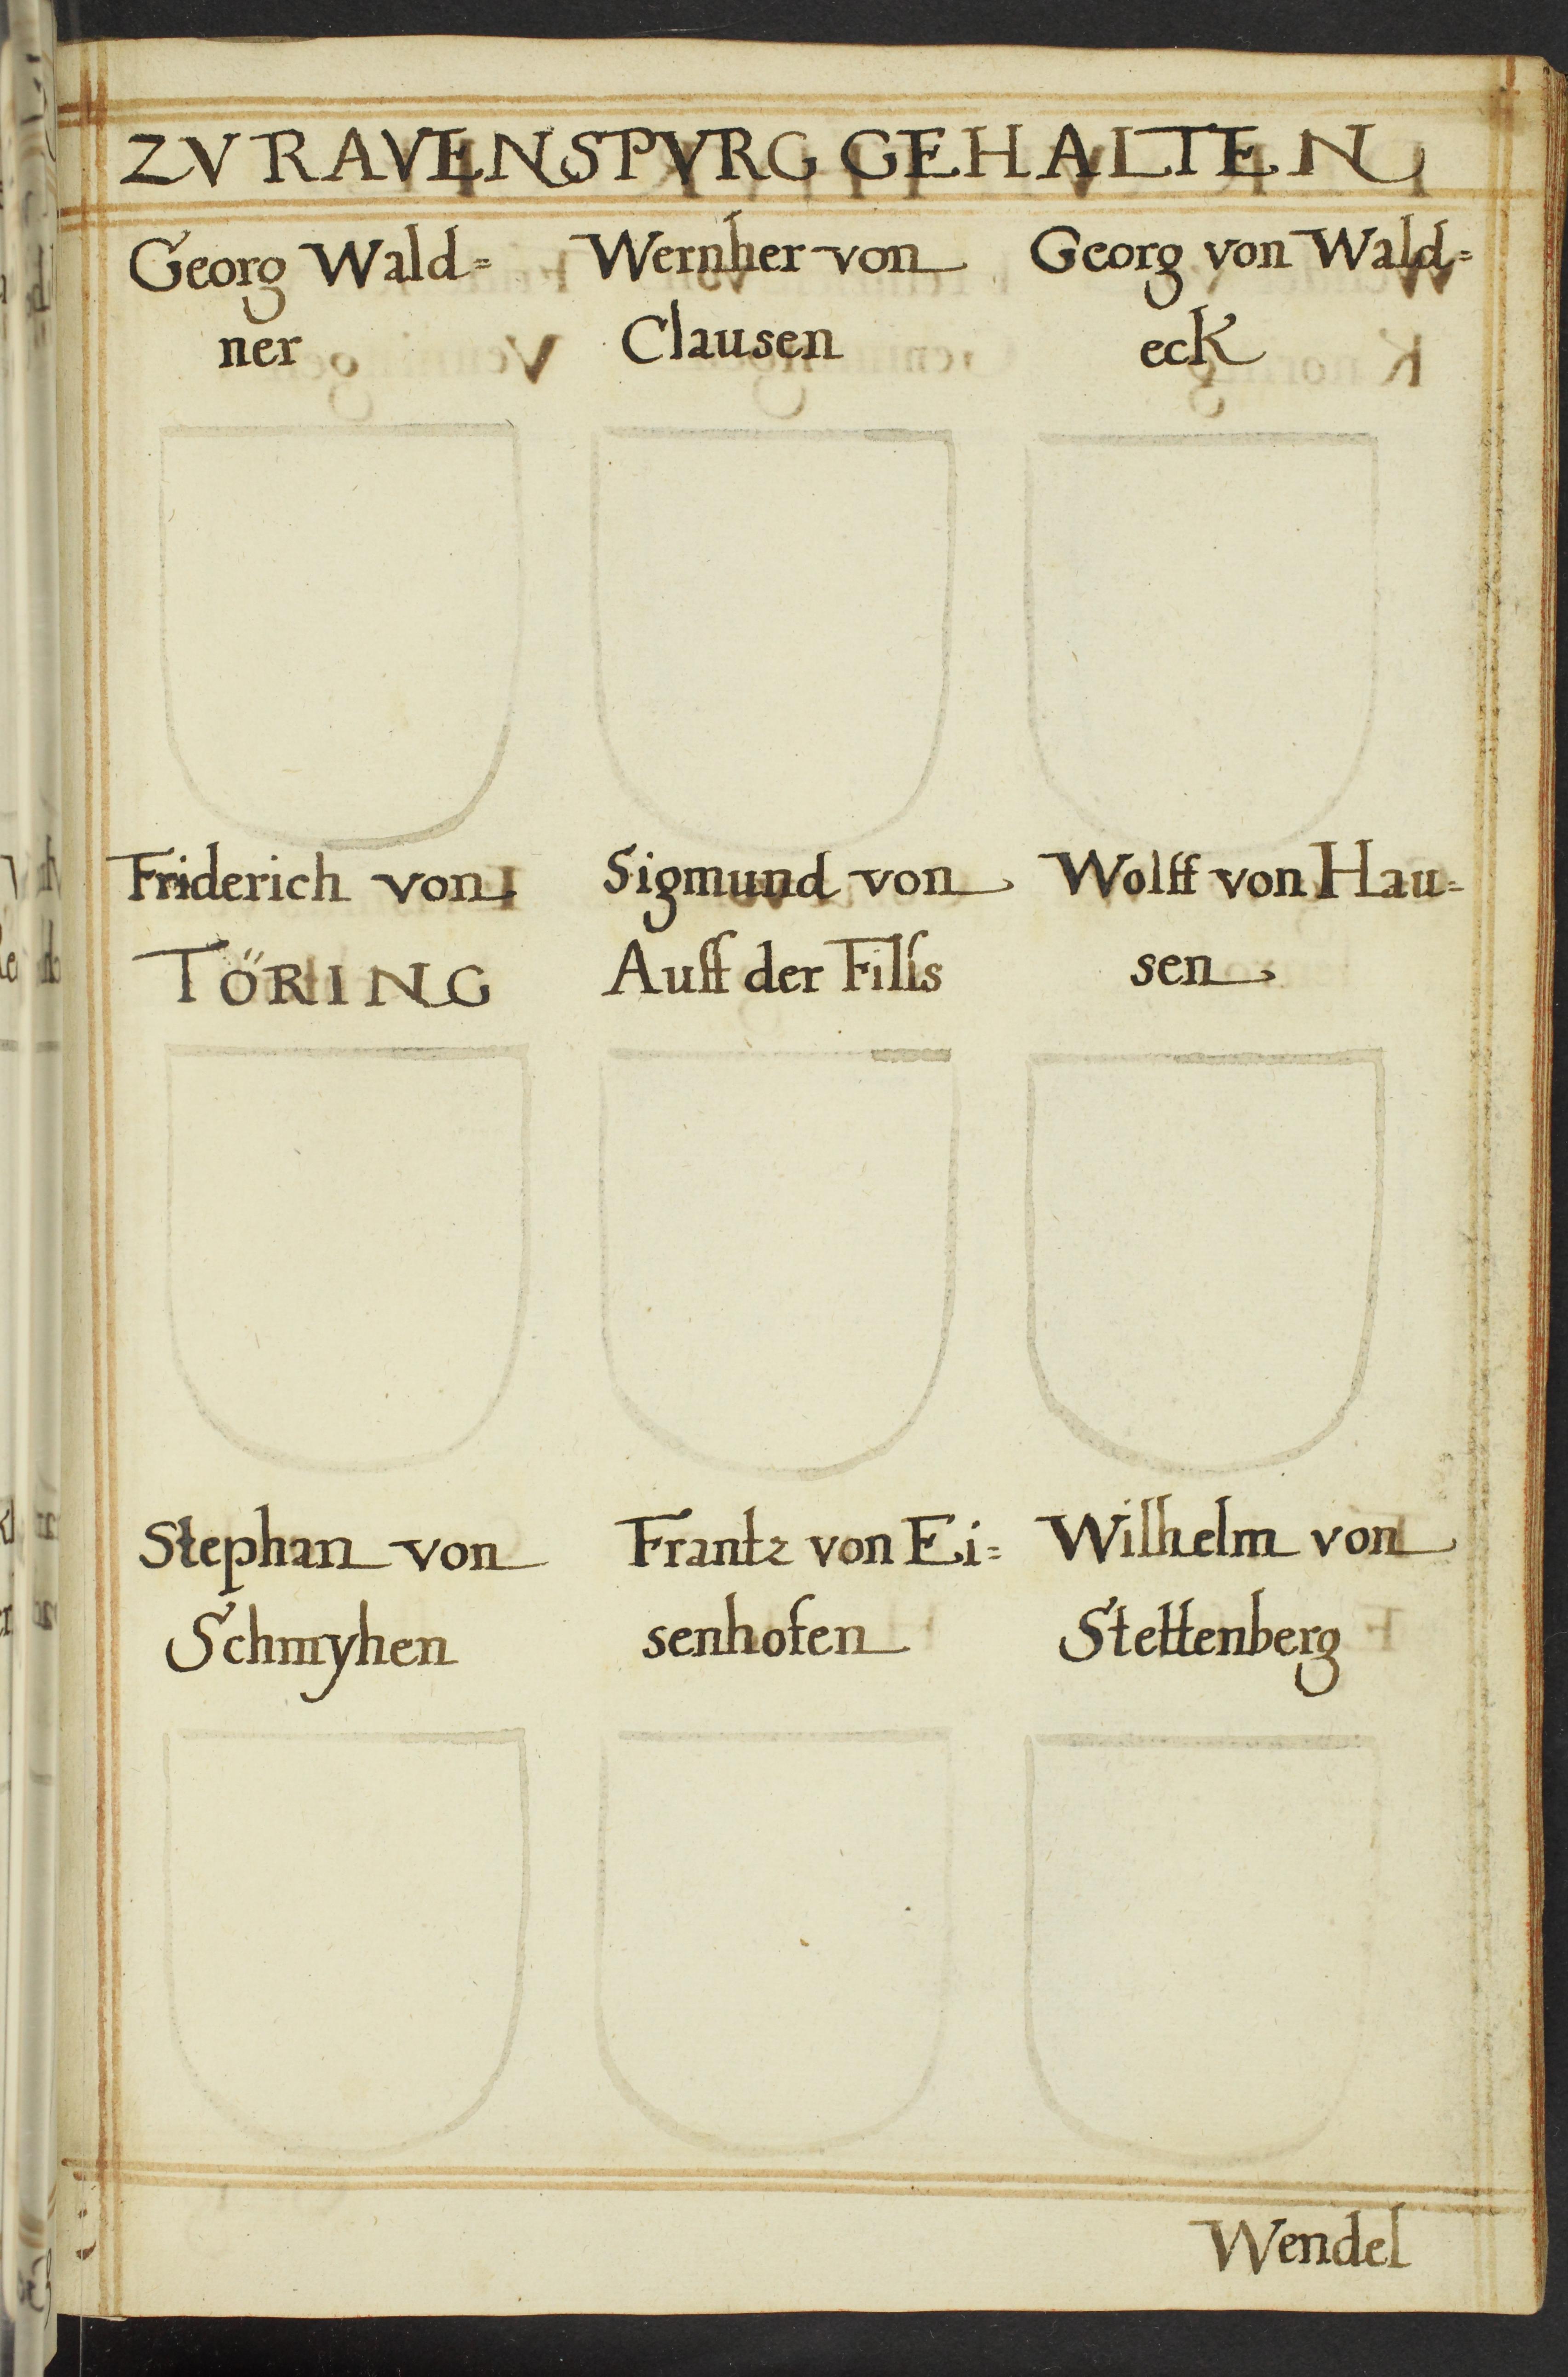 ZV RAVENSPVRG GEHALTEN
Georg Wald=
ner
Wernher von
Clausen
Georg von Wald=
eck
Friderich von
TÖRING
Sigmund von
Auff der Fills
Wolff von Hau=
sen
Stephan von
Schmyhen
Frantz von Ei=
senhofen
Wilhelm von
Stettenberg
Wendel